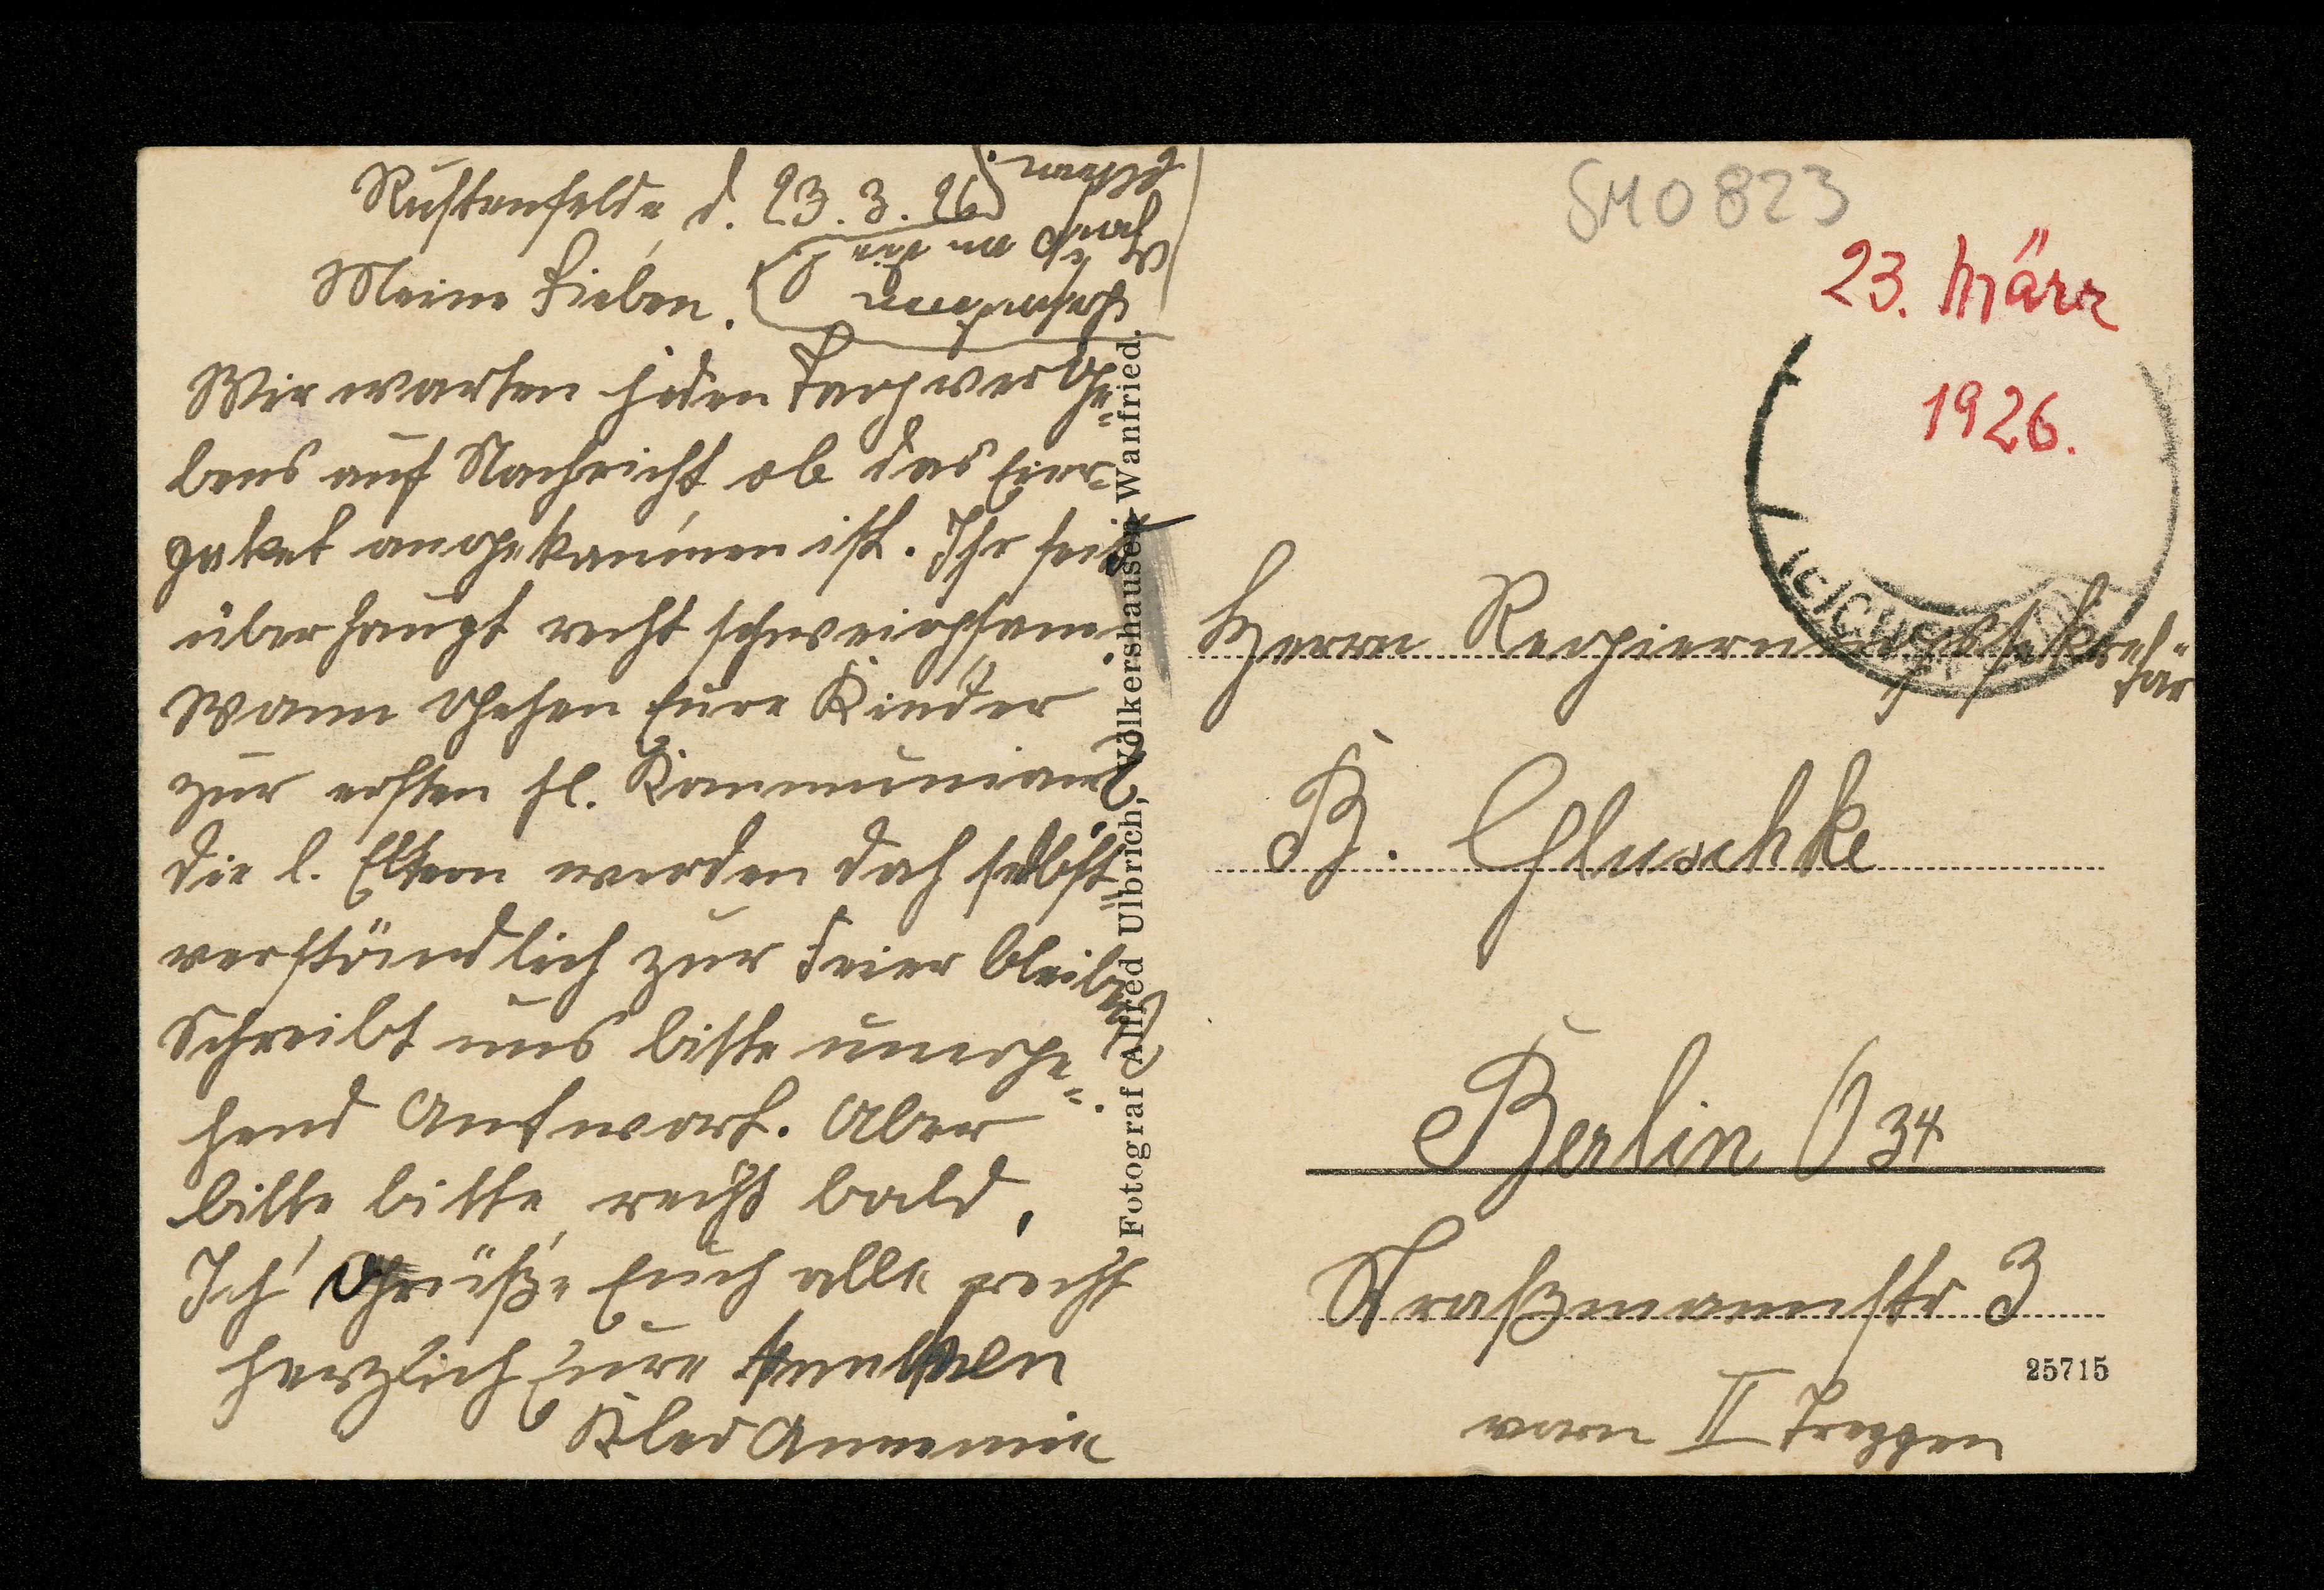 Rustenfelde, d. 23.3.26
Meine Lieben.
Wir warten jeden Tag verge=
bens auf Nachricht ob das Eier-
paket angekommen ist. Ihr seid
überhaupt recht schweigsam.
Wann gehen Eure Kinder
zur ersten hl. Kommunion?
die l. Eltern werden doch selbst=
verständlich zur Feier bleiben?
Schreibt uns bitte umge=
hend Antwort. Aber
bitte, bitte, recht bald.
Ich grüße Euch alle recht
herzlich Eure
Annemie
Gruß an die
Eltern.
SMO823
23. März
1926.
Herrn Regierungssekre=
tär
B. Gluschke
Berlin O 34
Straßmannstr 3
vorn II Treppen
25715
Fotograf Alfred Ulbrich, Völkershausen-Wanfried.